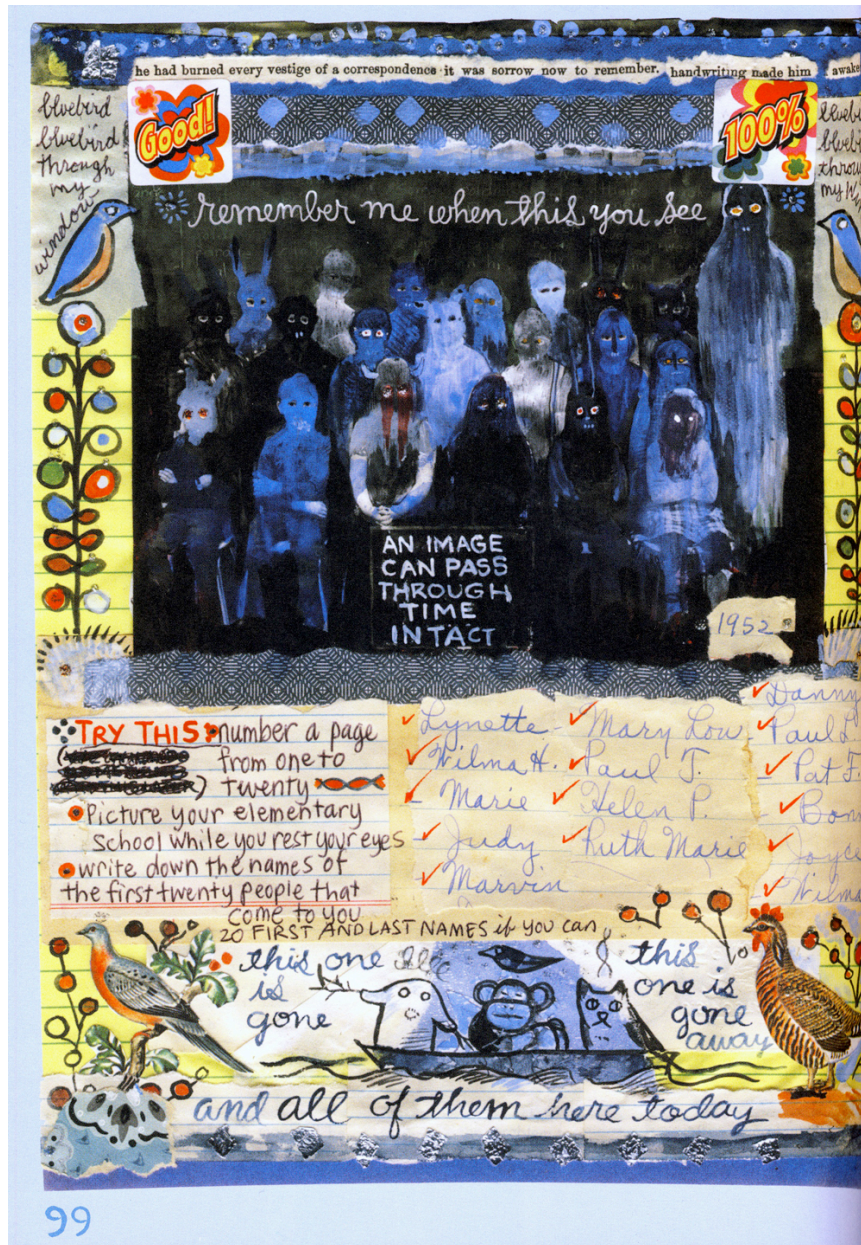 he had burned every vestige of a correspondence it was sorrow now to remember. handwriting made him awake
bluebird
bluebird
through
my
window
Good!
100%
blueb
blueb
throu
my w
remember me when this you see
AN IMAGE
CAN PASS
THROUGH
TIME
INTACT
1952
TRY THIS: number a page
from one to
twenty
Picture your elementary
School while you rest your eyes
write down the names of
the first twenty people that
come to you
20 FIRST AND LAST NAMES if YOU CAN
Lynette
Wilma H.
Marie
Judy
Marvin
Mary Lou
Paul T.
Helen P.
Ruth Marie
Danny
Paul L.
Pat F.
Bon
Joyce
Wilma
this one
is
gone
this
one is
gone
away
and all of them here today
99